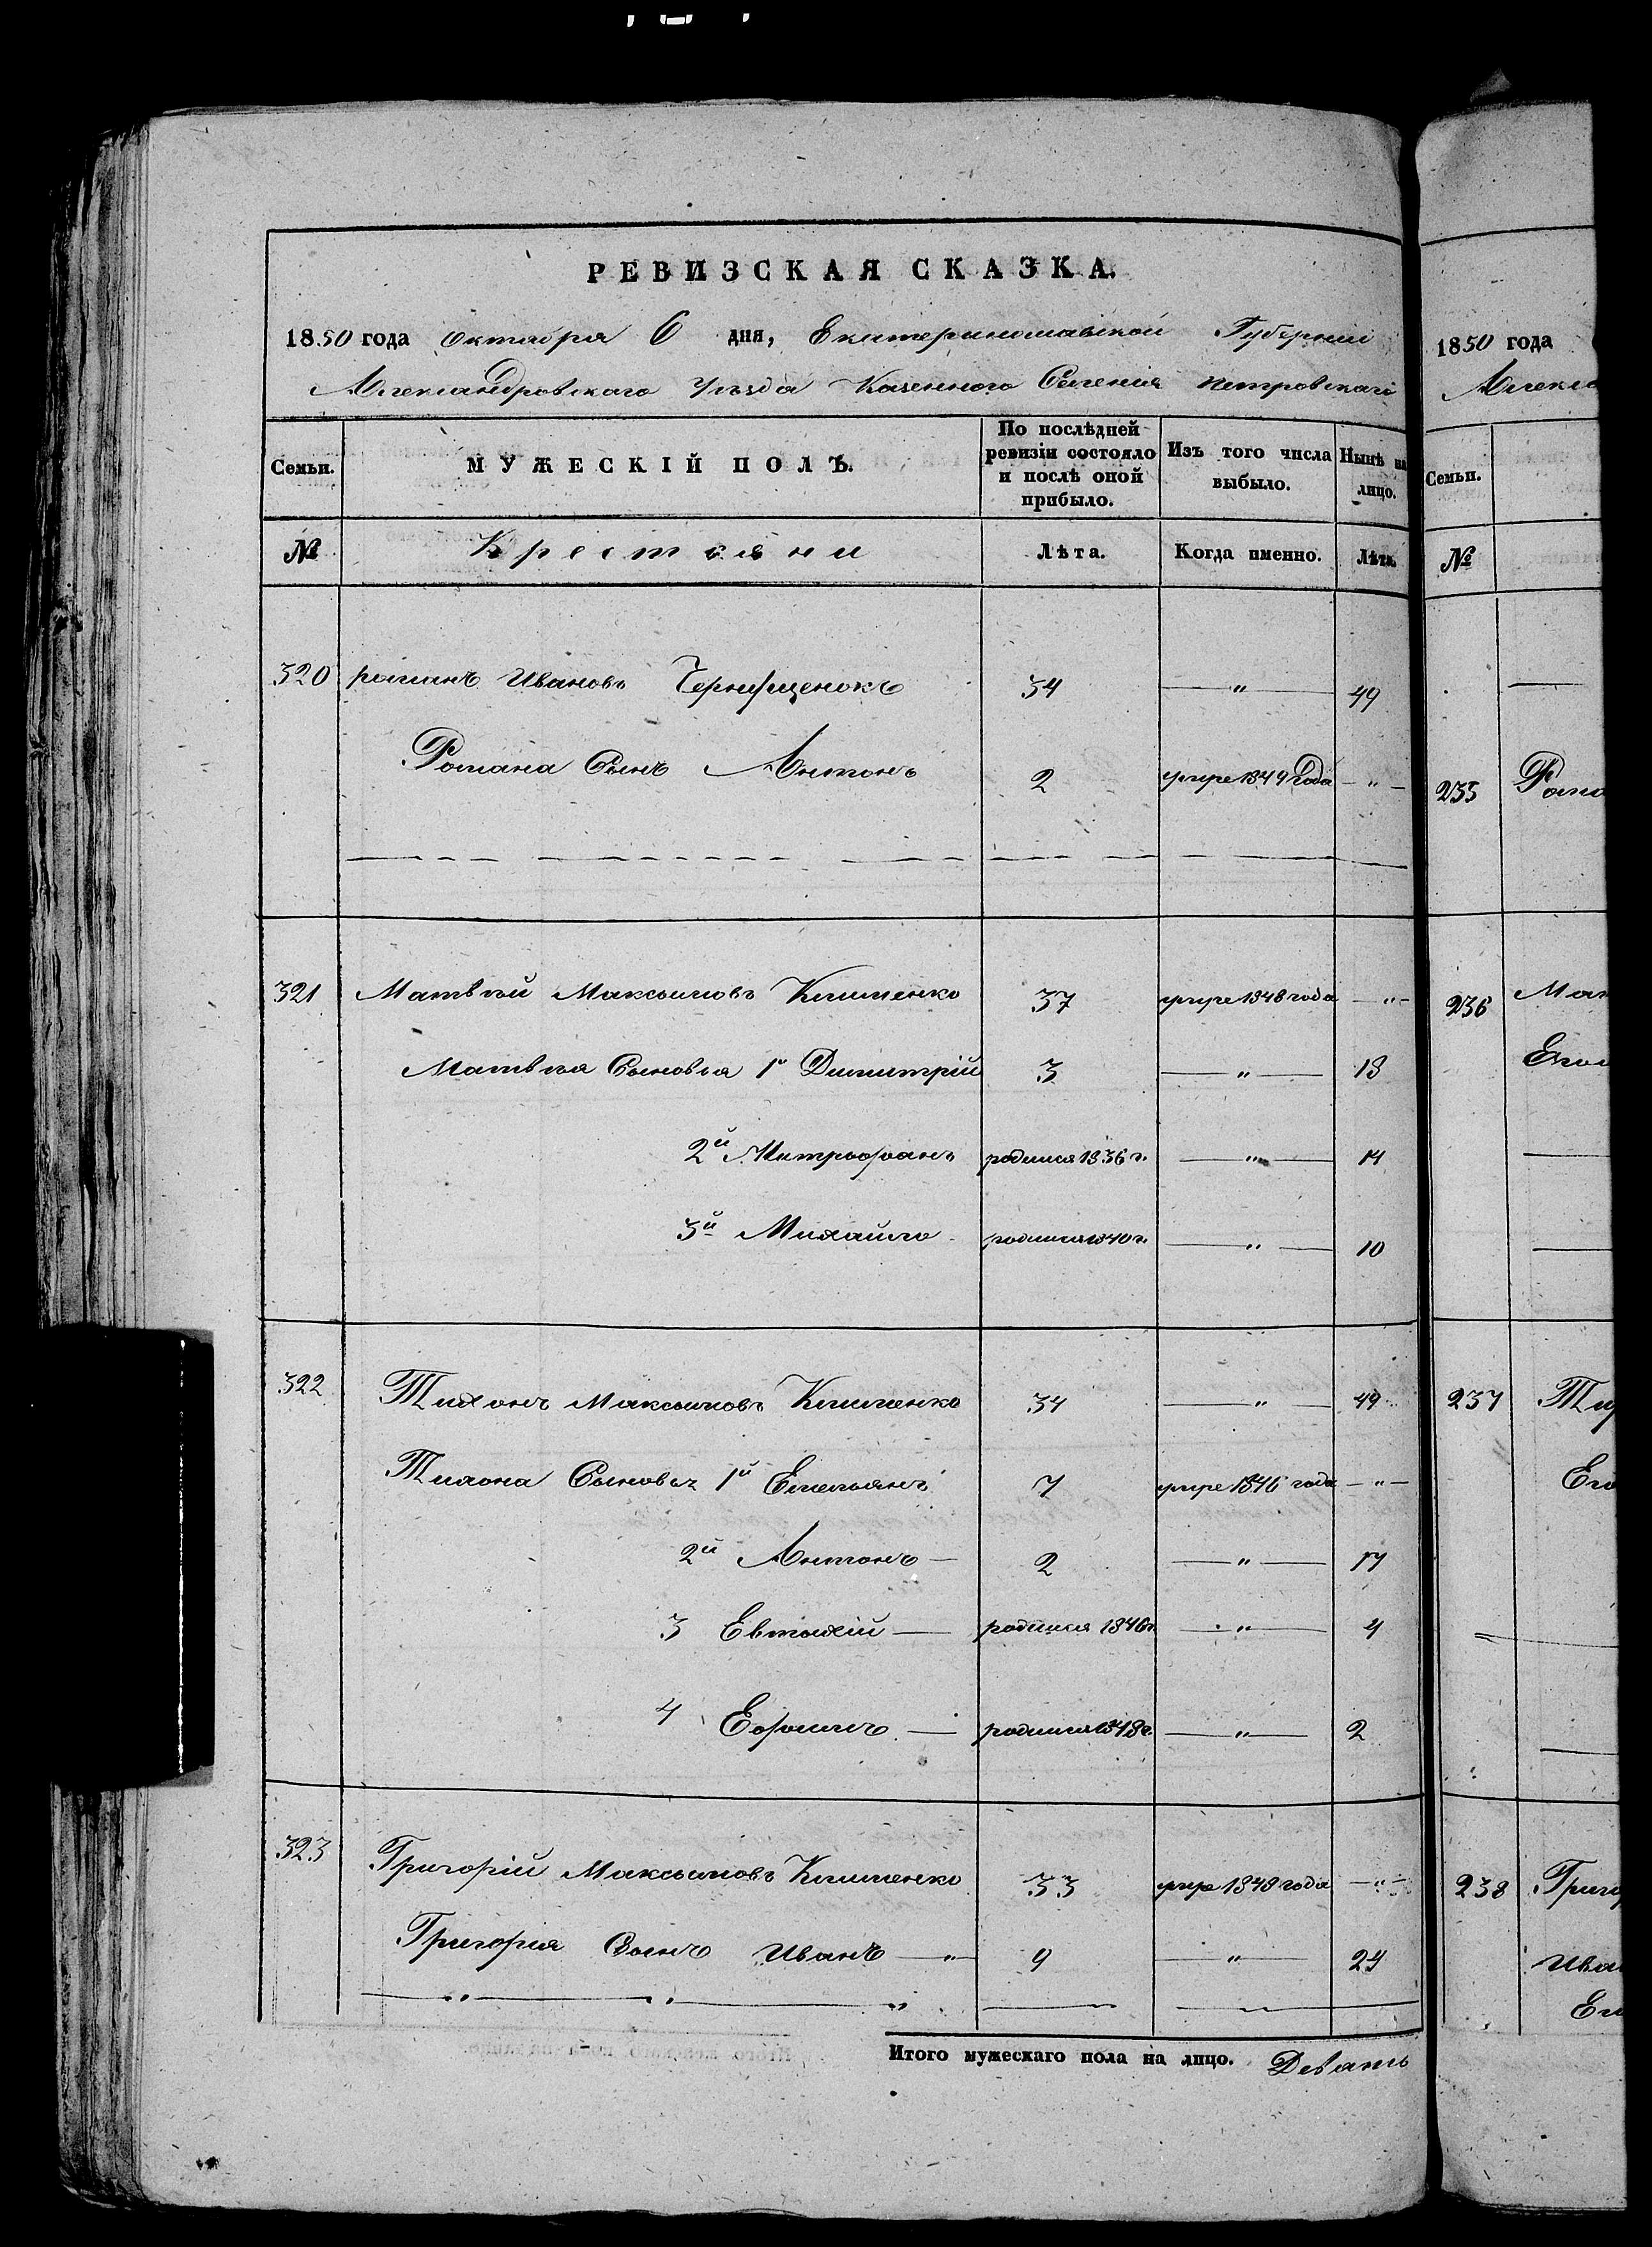 РЕВИЗСКАЯ СКАЗКА.
1850 года Октября 6 дня, Екатеринославской Губернии
Александровскаго Уѣзда Казеннаго Селенія Петровскаго
Семьи. МУЖЕСКІЙ ПОЛЪ. По послѣдней ревизіи состояло и послѣ оной прибыло. Изъ того числа выбыло. Нынѣ на лицо.
№ Крестьяни Лѣта. Когда именно. Лѣта.
320 романъ Ивановъ 34 — " — 49
Романа Сынъ Антонъ 2 умре 1849 Года — " —
321 Матвѣй Максимовъ Клименко 37 умре 1848 года — " —
Матвѣя Сыновья 1й Димитрій 3 — " — 18
2й Митрофанъ родился 1836 г. — " — 14
3й Михайло родился 1840 г. — " — 10
322 Тихонъ Максимовъ Клименко 34 — " — 49
Тихона Сыновья 1й Емельянъ 7 умре 1846 года — " —
2й Антонъ — 2 — " — 17
3 Евтихій — родился 1846 г. — " — 4
4 Ефимъ — родился 1848 г. — " — 2
323 Григорій Максимовъ Клименко 33 умре 1848 года — " —
Григорія Сынъ Иванъ — " — 9 — " — 24
Итого мужескаго пола на лицо. Девять
1850 года
Алекса
Семьи.
№
235 Рома
236 Мат
Его
237 Тих
Его
238 Григо
Ива
Его